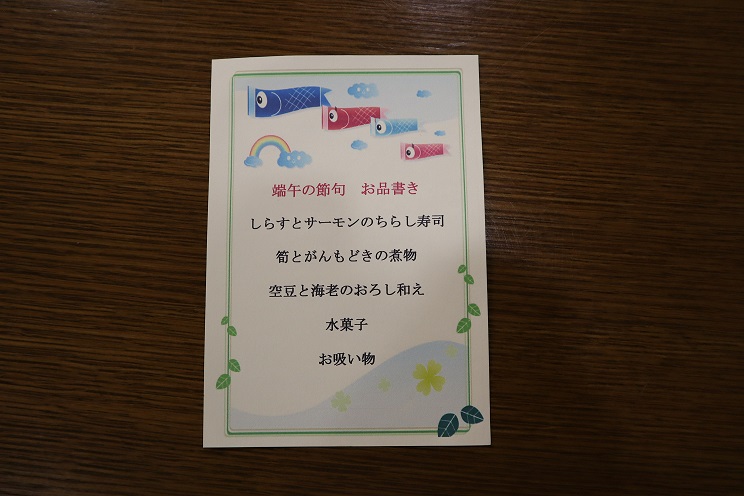 端午の節句　お品書き
しらすとサーモンのちらし寿司
筍とがんもどきの煮物
空豆と海老のおろし和え
水菓子
お吸い物